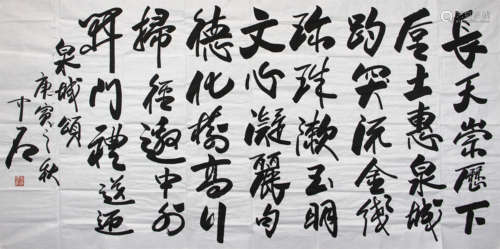 長天崇歷下
垕土惠泉城
趵突流金綫
珎珠漱玉明
文心凝麗句
德化樹高行
掃徑邀中外
開門禮送迎
泉城頌
庚寅之秋
中石